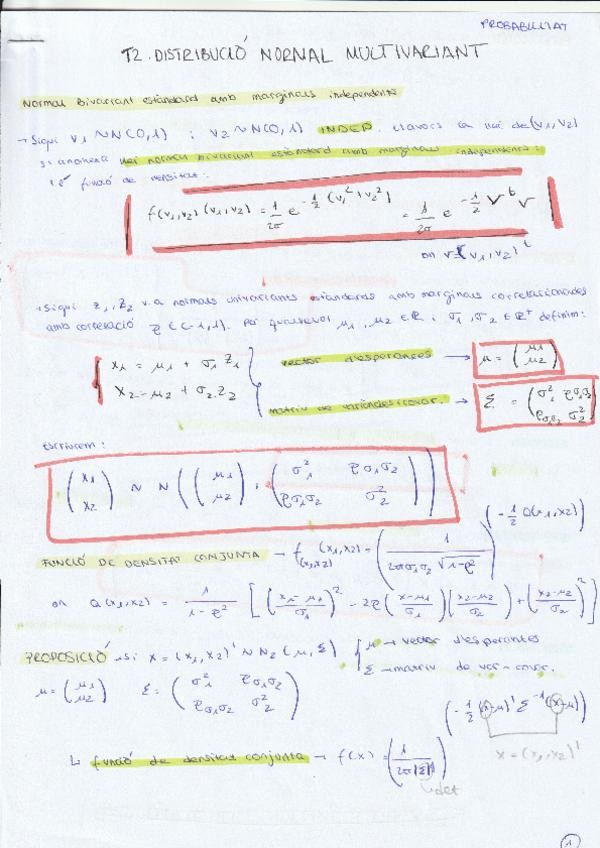 PROBABILITAT
T2. DISTRIBUCIÓ NORMAL MULTIVARIANT
Normal bivariant estàndard amb marginals independents
→ Sigui V1 ~ N(0,1) i V2 ~ N(0,1) INDEP. llavors la llei de (V1, V2)
s'anomena llei normal bivariant estàndard amb marginals independents i
té funció de densitat:
f(v1,v2) (v1,v2) = 1/2σ e^{-1/2 (v1² + v2²)} = 1/2σ e^{-1/2 v^t v}
on v=(v1,v2)^t
• Sigui Z1, Z2 v.a normals univariants estàndards amb marginals correlacionades
amb correlació ρ ∈ (-1,1). Per qualsevol μ1, μ2 ∈ ℝ i σ1, σ2 ∈ ℝ⁺ definim:
x1 = μ1 + σ1 Z1
x2 = μ2 + σ2 Z2
vector d'esperances → μ = (μ1 μ2)
matriu de variàncies i covar. → Σ = (σ1² ρσ1σ2 ρσ1σ2 σ2²)
Escriurem:
(x1 x2) ~ N ((μ1 μ2), (σ1² ρσ1σ2 ρσ1σ2 σ2²))
FUNCIÓ DE DENSITAT CONJUNTA → f(x1,x2) (x1,x2) = (1 / 2σσ1σ2 √1-ρ²) (-1/2 Q(x1,x2))
on Q(x1,x2) = 1/1-ρ² [((x1-μ1)/σ1)² - 2ρ((x-μ1)/σ1)((x2-μ2)/σ2) + ((x2-μ2)/σ2)²]
PROPOSICIÓ • Si X = (x1,x2)' ~ N2 (μ, Σ) { μ → vector d'esperances
Σ → matriu de var-covar.
μ = (μ1 μ2) Σ = (σ1² ρσ1σ2 ρσ1σ2 σ2²)
↳ funció de densitat conjunta → f(x) = (1 / 2σ|Σ|) (-1/2 (x-μ)' Σ⁻¹ (x-μ))
x = (x1,x2)'
↳ det
1